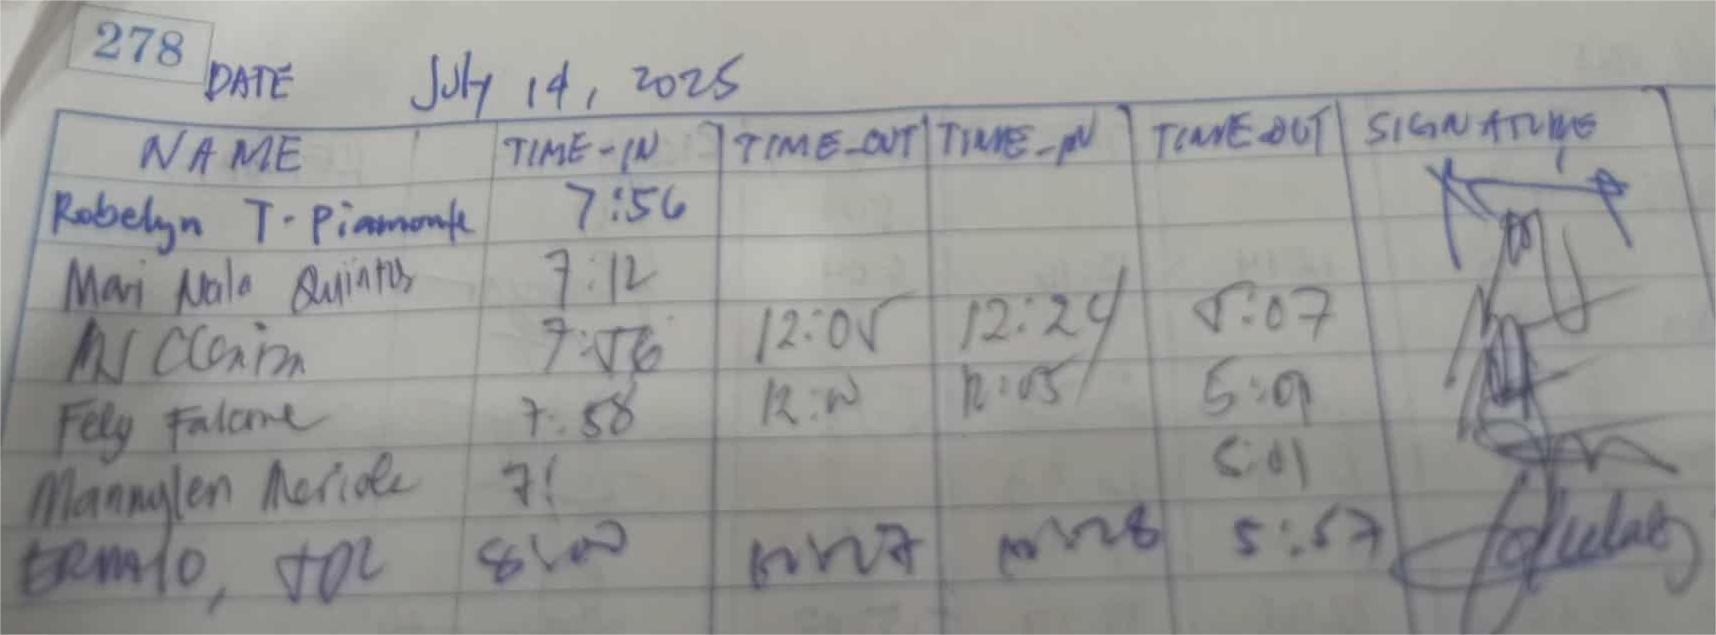 278
DATE July 14, 2025
NAME TIME-IN TIME-OUT TIME-IN TIME-OUT SIGNATURE
Robelyn T. Piamonte 7:56
Mari Nala Quintos 7:12
7:56 12:05 12:24 5:07
Fely Falcone 7:58 12:00 12:05 5:01
Mannylen 7: 5:01
ERMAIO, 8:00 12:27 12:28 5:57